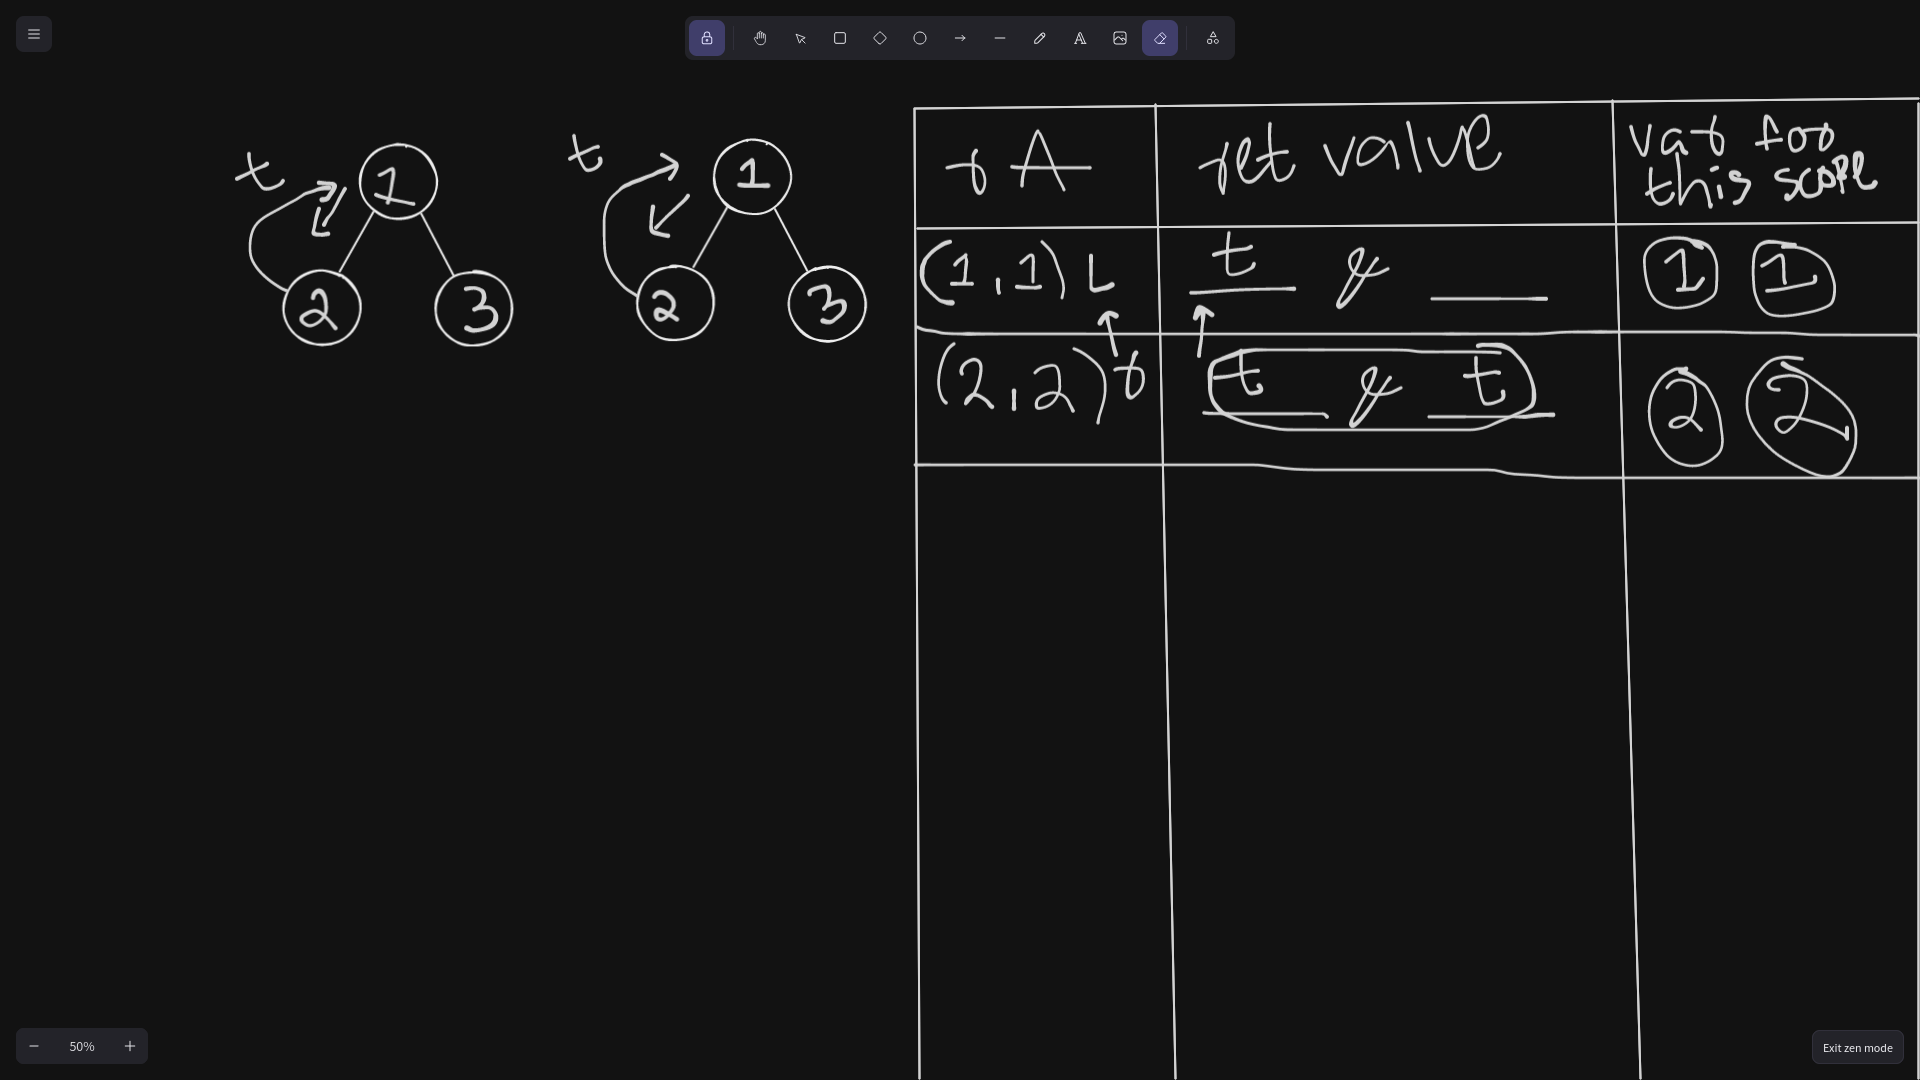 t
1
2
3
t
1
2
3
rA
ret value
var for
this scope
(1,1) L
t & __
1 1
(2,2) r
t & t
2 2
50%
Exit zen mode